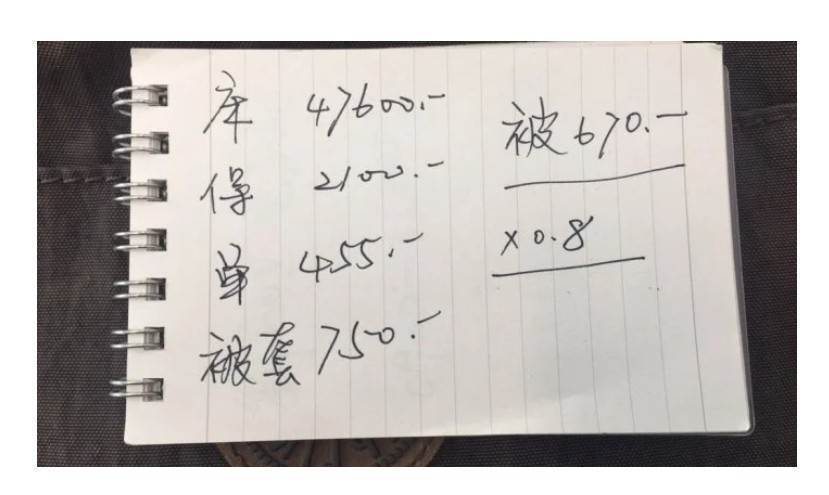 床 47600.-
保 2100.-
单 455.-
被套 750.-
被 670.-
×0.8